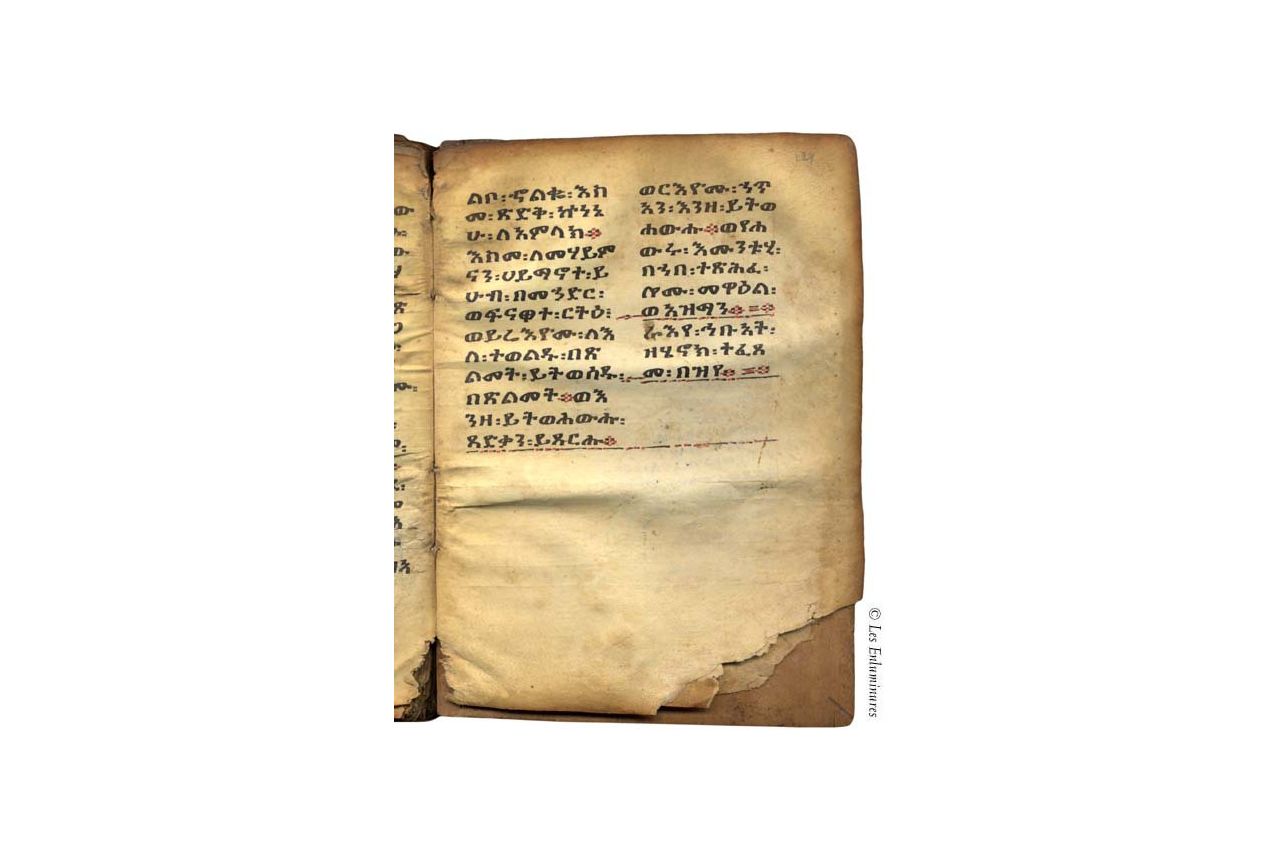 ልቦ፡ኍልቈ፡እከ
መ፡ጽድቅ፡ኵነኔ
ሁ፡ለአምላክ፨
እስመ፡ለመሃይም
ናን፡ሀይማኖተ፡ይ
ሁብ፡በመኃድር፡
ወፍናዋተ፡ርትዕ፡
ወይሬእየሙ፡ለእ
ለ፡ተወልዱ፡በጽ
ልመት፡ይትወሰዱ፡
በጽልመት፨ወእ
ንዘ፡ይትወሐውሑ፡
ጻድቃን፡ይጸርሑ፨
ወርእየሙ፡ኃጥ
አን፡እንዘ፡ይትወ
ሐውሑ፨ወየሐ
ውሩ፡እሙንቱሂ፡
በኀበ፡ተጽሕፈ፡
ሎሙ፡መዋዕል፡
ወአዝማን፨=፨
ራእየ፡ኅቡኣት፡
ዘሄኖክ፡ተፈጸ
መ፡በዝየ፨=፨
© Les Enluminures